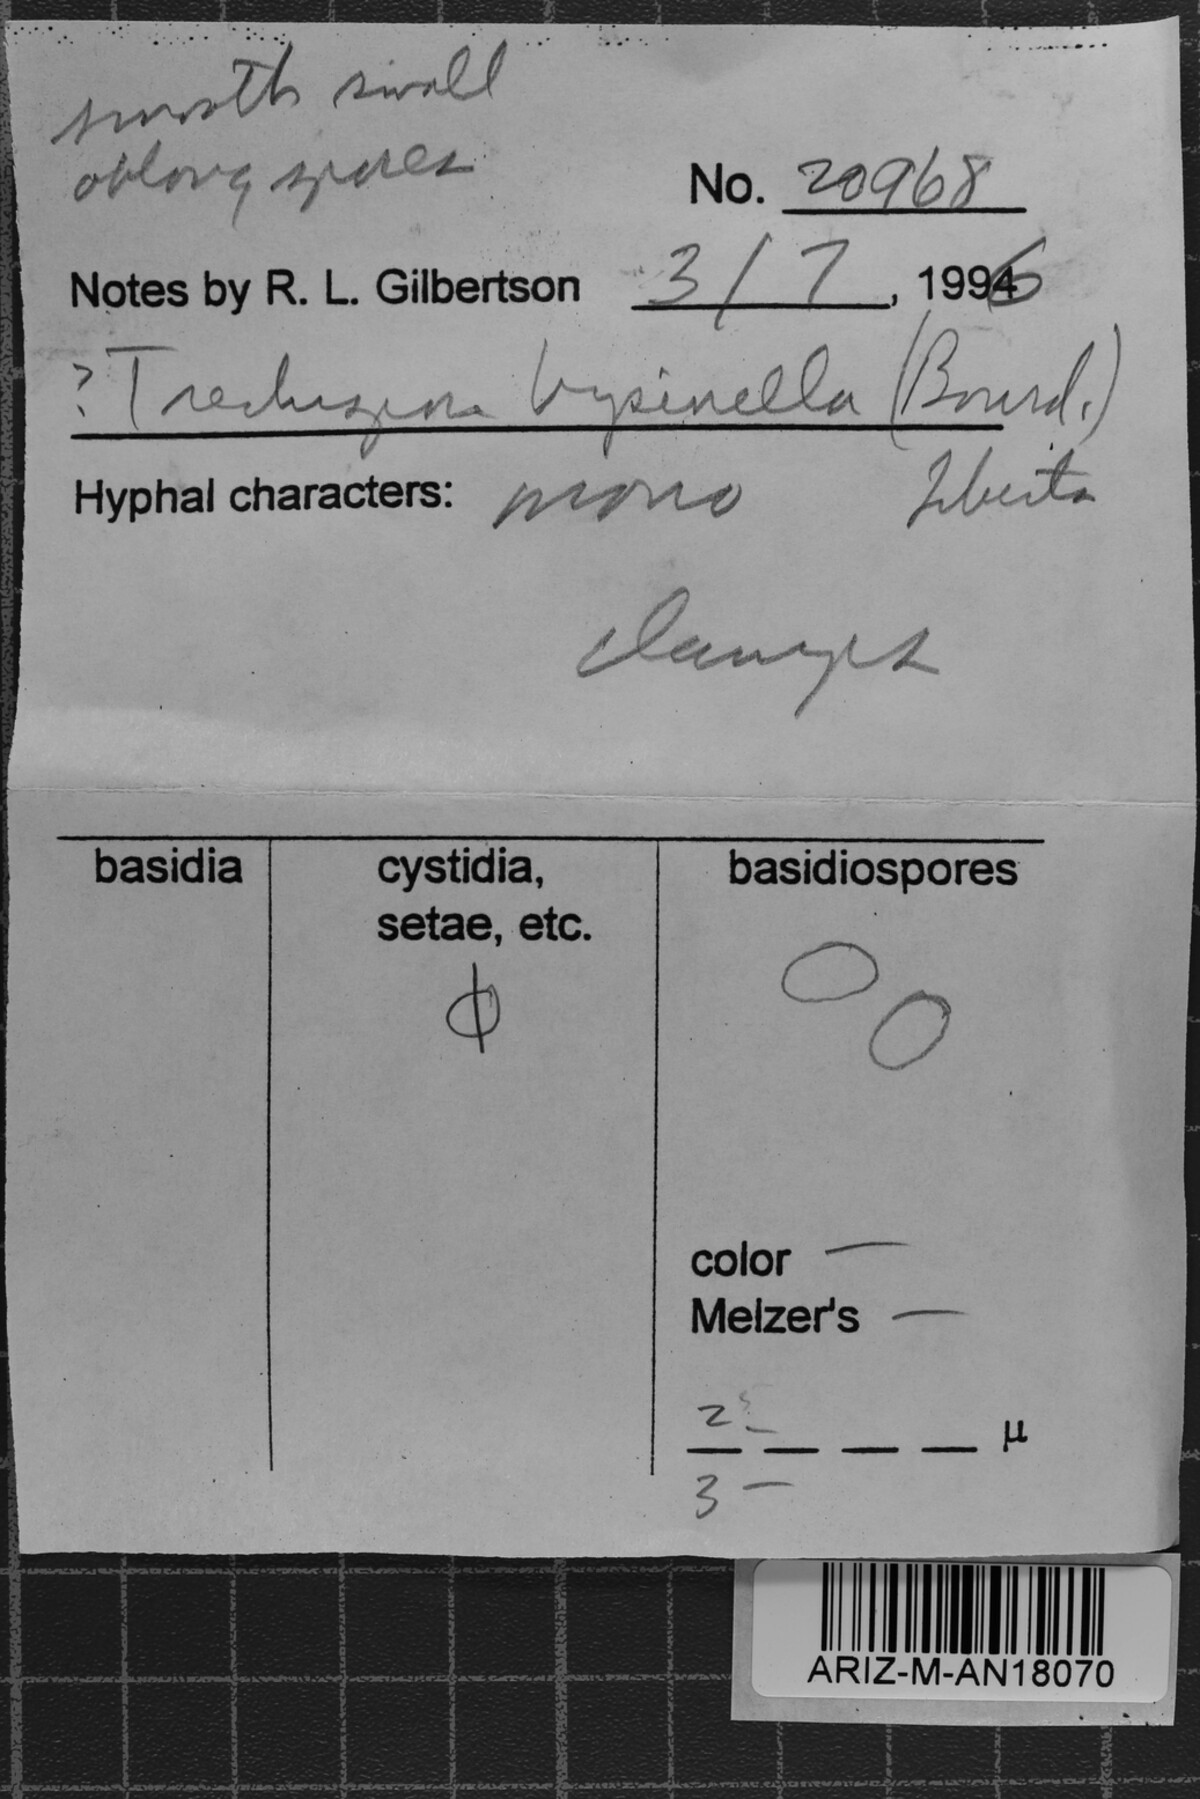 smooth small
oblong spores
No. 20968
Notes by R. L. Gilbertson 3/7, 1996
? Trechispora bysinella (Bourd.)
Hyphal characters: mono Liberta
clamps
basidia
cystidia,
setae, etc.
basidiospores
color —
Melzer's —
2 –
µ
3 –
ARIZ-M-AN18070